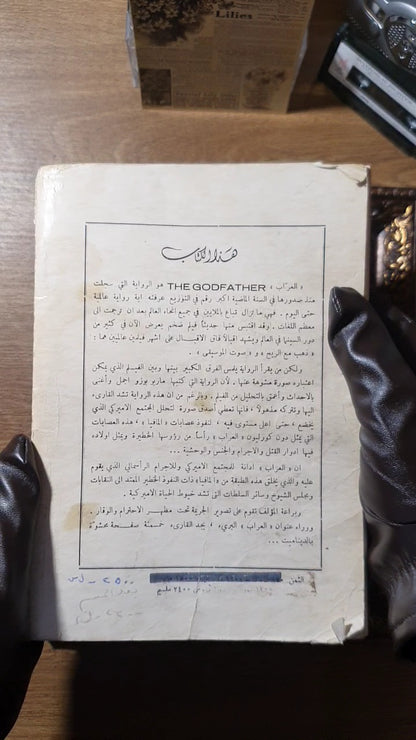 Lilies
هذا الكتاب
« العراب » THE GODFATHER هو الرواية التي سجلت
منذ صدورها في السنة الماضية اكبر رقم في التوزيع عرفته اية رواية عالمية
حتى اليوم . فهي ما تزال تباع بالملايين في جميع انحاء العالم بعد ان ترجمت الى
معظم اللغات . وقد اقتبس منها حديثاً فيلم ضخم يعرض الآن في كثير من
دور السينما في العالم ويشهد اقبالاً فاق الاقبال على اشهر فيلمين عالميين هما :
« ذهب مع الريح » و « صوت الموسيقى » .
ولكن من يقرأ الرواية يلمس الفرق الكبير بينها وبين الفيلم الذي يمكن
اعتباره صورة مشوهة عنها . لأن الرواية التي كتبها ماريو بوزو اجمل وأغنى
بالاحداث وأعمق بالتحليل من الفيلم . وبالرغم من ان هذه الرواية تشد القارىء
اليها وتتركه مذهولاً ، فانها تعطي أصدق صورة لتحلل المجتمع الاميركي الذي
يخضع ، حتى اعلى مستوى فيه ، لنفوذ عصابات « المافيا » ، هذه العصابات
التي يمثل دون كورليون « العراب » رأساً من رؤوسها الخطيرة ويمثل اولاده
فيها ادوار القتل والاجرام والجنس والوحشية ...
ان « العراب » ادانة للمجتمع الاميركي وللاجرام الرأسمالي الذي يقوم
عليه والذي يخلق هذه الطبقة من « المافيا » ذات النفوذ الخطير الممتد الى النقابات
ومجلس الشيوخ وسائر السلطات التي تشد خيوط الحياة الاميركية .
وبراعة المؤلف تقوم على تصوير الجريمة تحت مظهر الاحترام والوقار .
ووراء عنوان « العراب » البريء ، يجد القارىء خمسمئة صفحة محشوة
بالديناميت ...
الثمن
٢٤٠٠ مليم
٢٥٠٠ ل.س